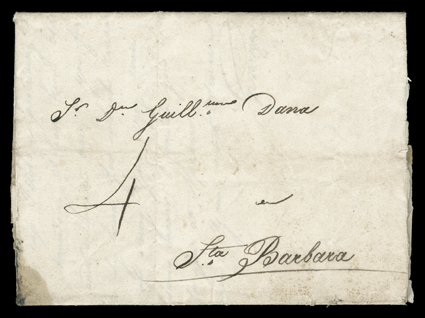 Sr Dn Guill.mo Dana
4
en
Sta Barbara